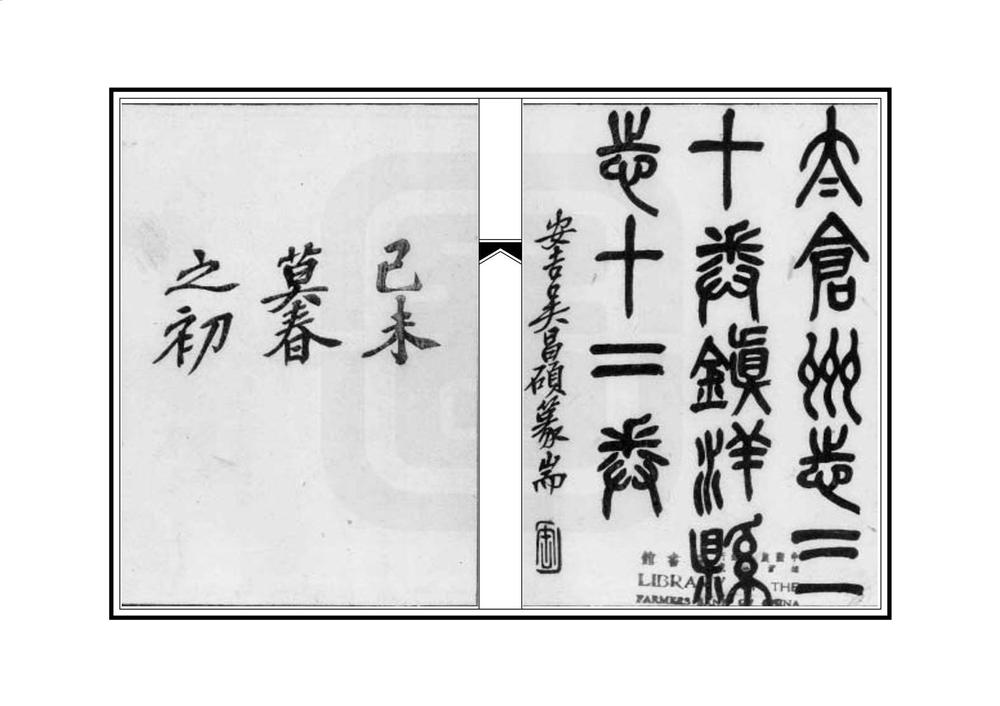 太倉州志三
十卷鎮洋縣
志十二卷
安吉吳昌碩篆耑
己未
莫春
之初
LIBRARY OF THE
FARMERS BANK OF CHINA